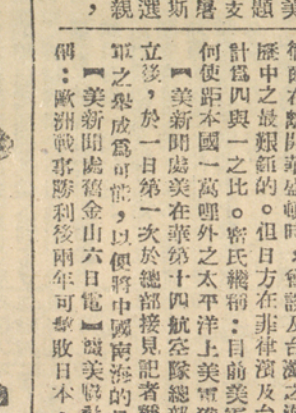 美
題
支
屠
斯
選
，親
彼的在離開華盛頓時，曾談及台灣之
歷中之最艱鉅的。但日方在菲律濱及台
計爲四與一之比。密氏繼稱：目前美
何使距本國一萬哩外之太平洋上美軍
【美新聞處美在華第十四航空隊總部
立後，於一日第一次於總部接見記者
軍之舉成爲可能，以便將中國南海的
【美新聞處舊金山六日電】
稱：歐洲戰事勝利後兩年可擊敗日本